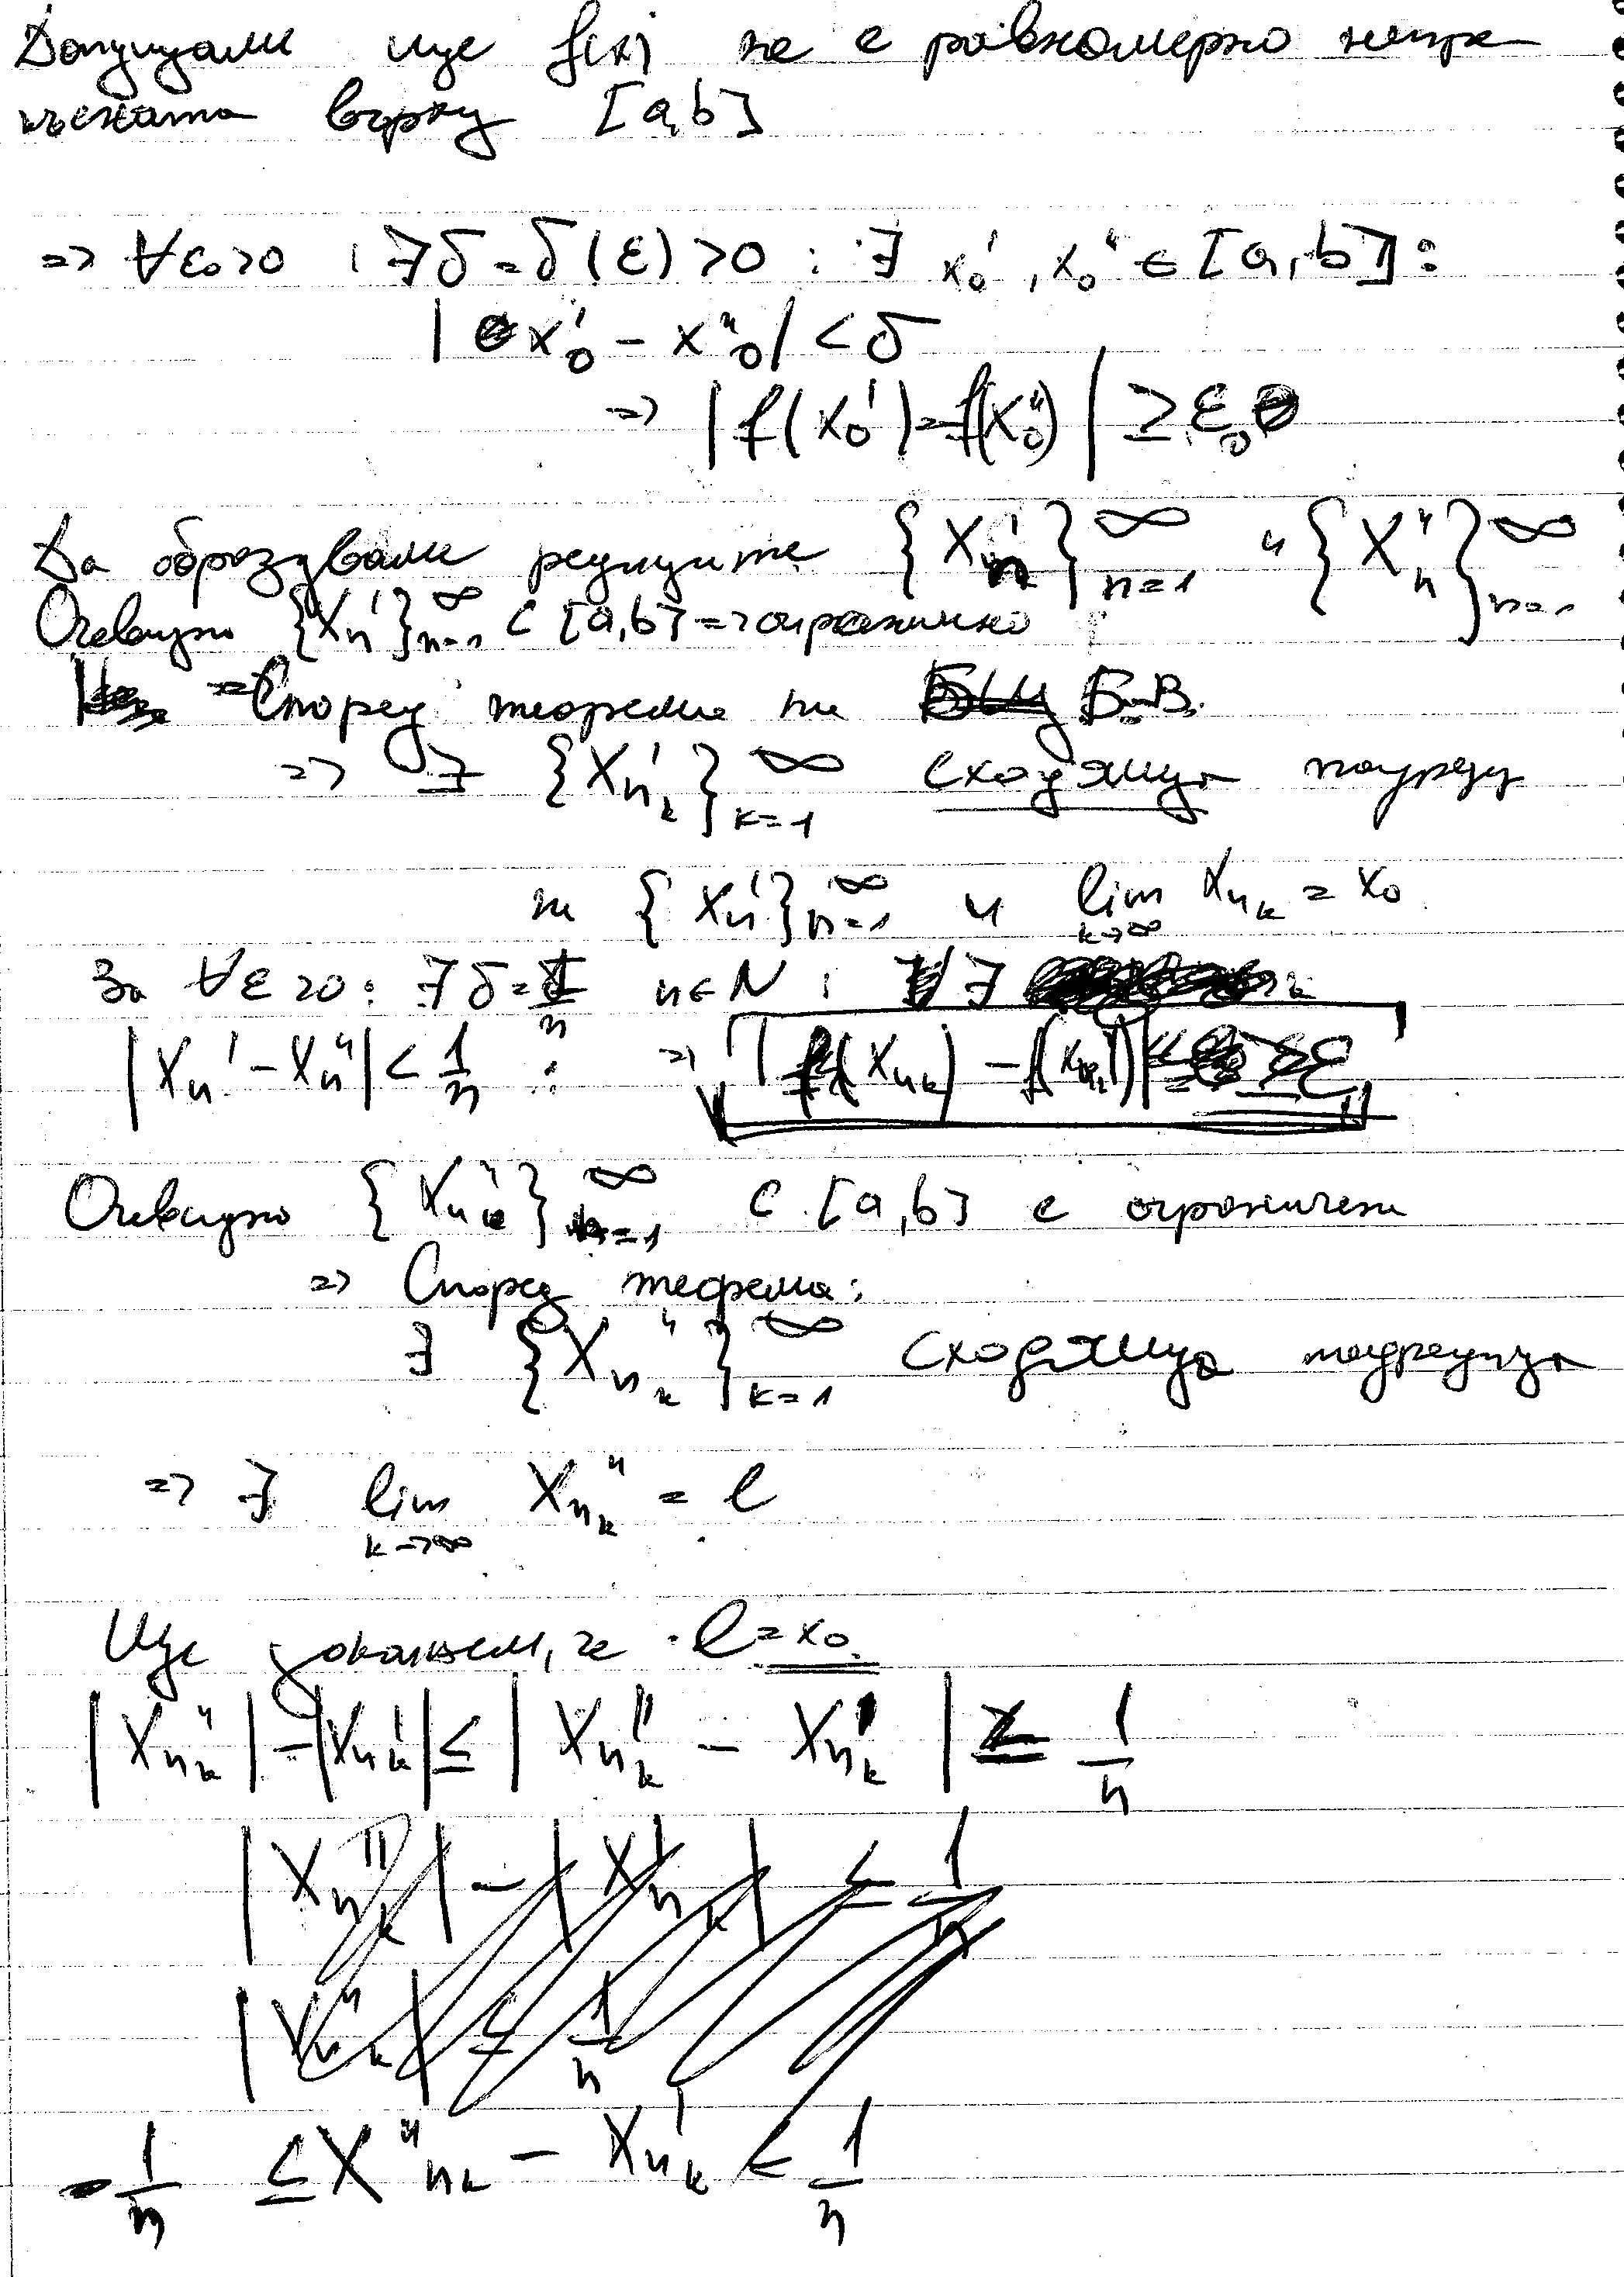 Допускаме ще f(x) не е равномерно непре-
късната върху [a,b]
=> ∀ε₀>0 : ∃δ=δ(ε)>0 : ∃ x₀', x₀'' ∈ [a,b]:
|x₀' - x₀''| < δ
=> |f(x₀') - f(x₀'')| ≥ ε₀
Да образуваме редиците {xₙ'}ₙ₌₁^∞ и {xₙ''}ₙ₌₁^∞
Очевидно {xₙ'}ₙ₌₁^∞ ⊂ [a,b] => ограничено
=> Според теорема на Б-В.
=> ∃ {x'_{n_k}}_{k=1}^∞ сходяща подред
на {xₙ'}ₙ₌₁^∞ и lim_{k→∞} x_{n_k} = x₀
За ∀ε>0: ∃δ=1/n n∈N : ∃
|xₙ' - xₙ''| < 1/n : => |f(x_{n_k}) - f(x_{n_k})| ≥ ε
Очевидно {x''_{n_k}}_{n=1}^∞ ⊂ [a,b] е ограничен
=> Според теорема:
∃ {x''_{n_k}}_{k=1}^∞ сходяща подредица
=> ∃ lim_{k→∞} x''_{n_k} = l
Ще докажем, че l = x₀
|x''_{n_k}| - |x'_{n_k}| ≤ |x''_{n_k} - x'_{n_k}| ≤ 1/n
|x''_{n_k}| - |x'_{n_k}| ≤ 1/n
|x''_{n_k}| ≤ 1/n
-1/n ≤ x''_{n_k} - x'_{n_k} ≤ 1/n